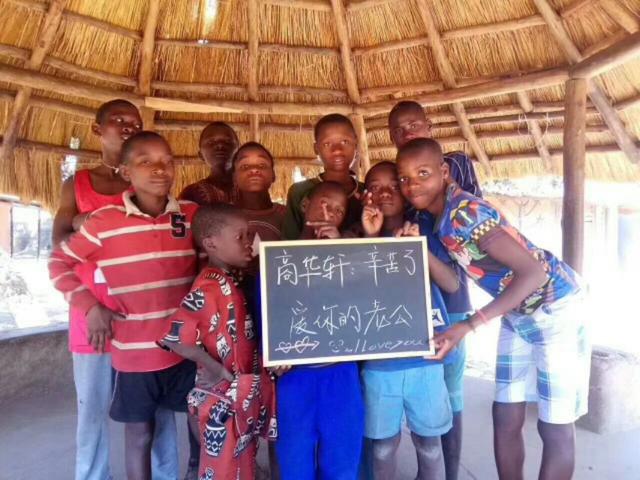 高华轩：辛苦了
爱你的老公
I love you
S